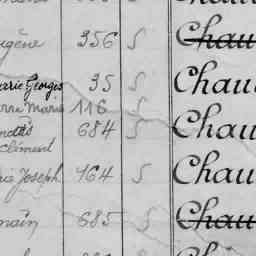 ugène 356 S Chau
arie Georges 35 S Chau
erre Marie 116 S
684 S Chau
Clément
rie Joseph 464 S Chau
main 685 S Chau